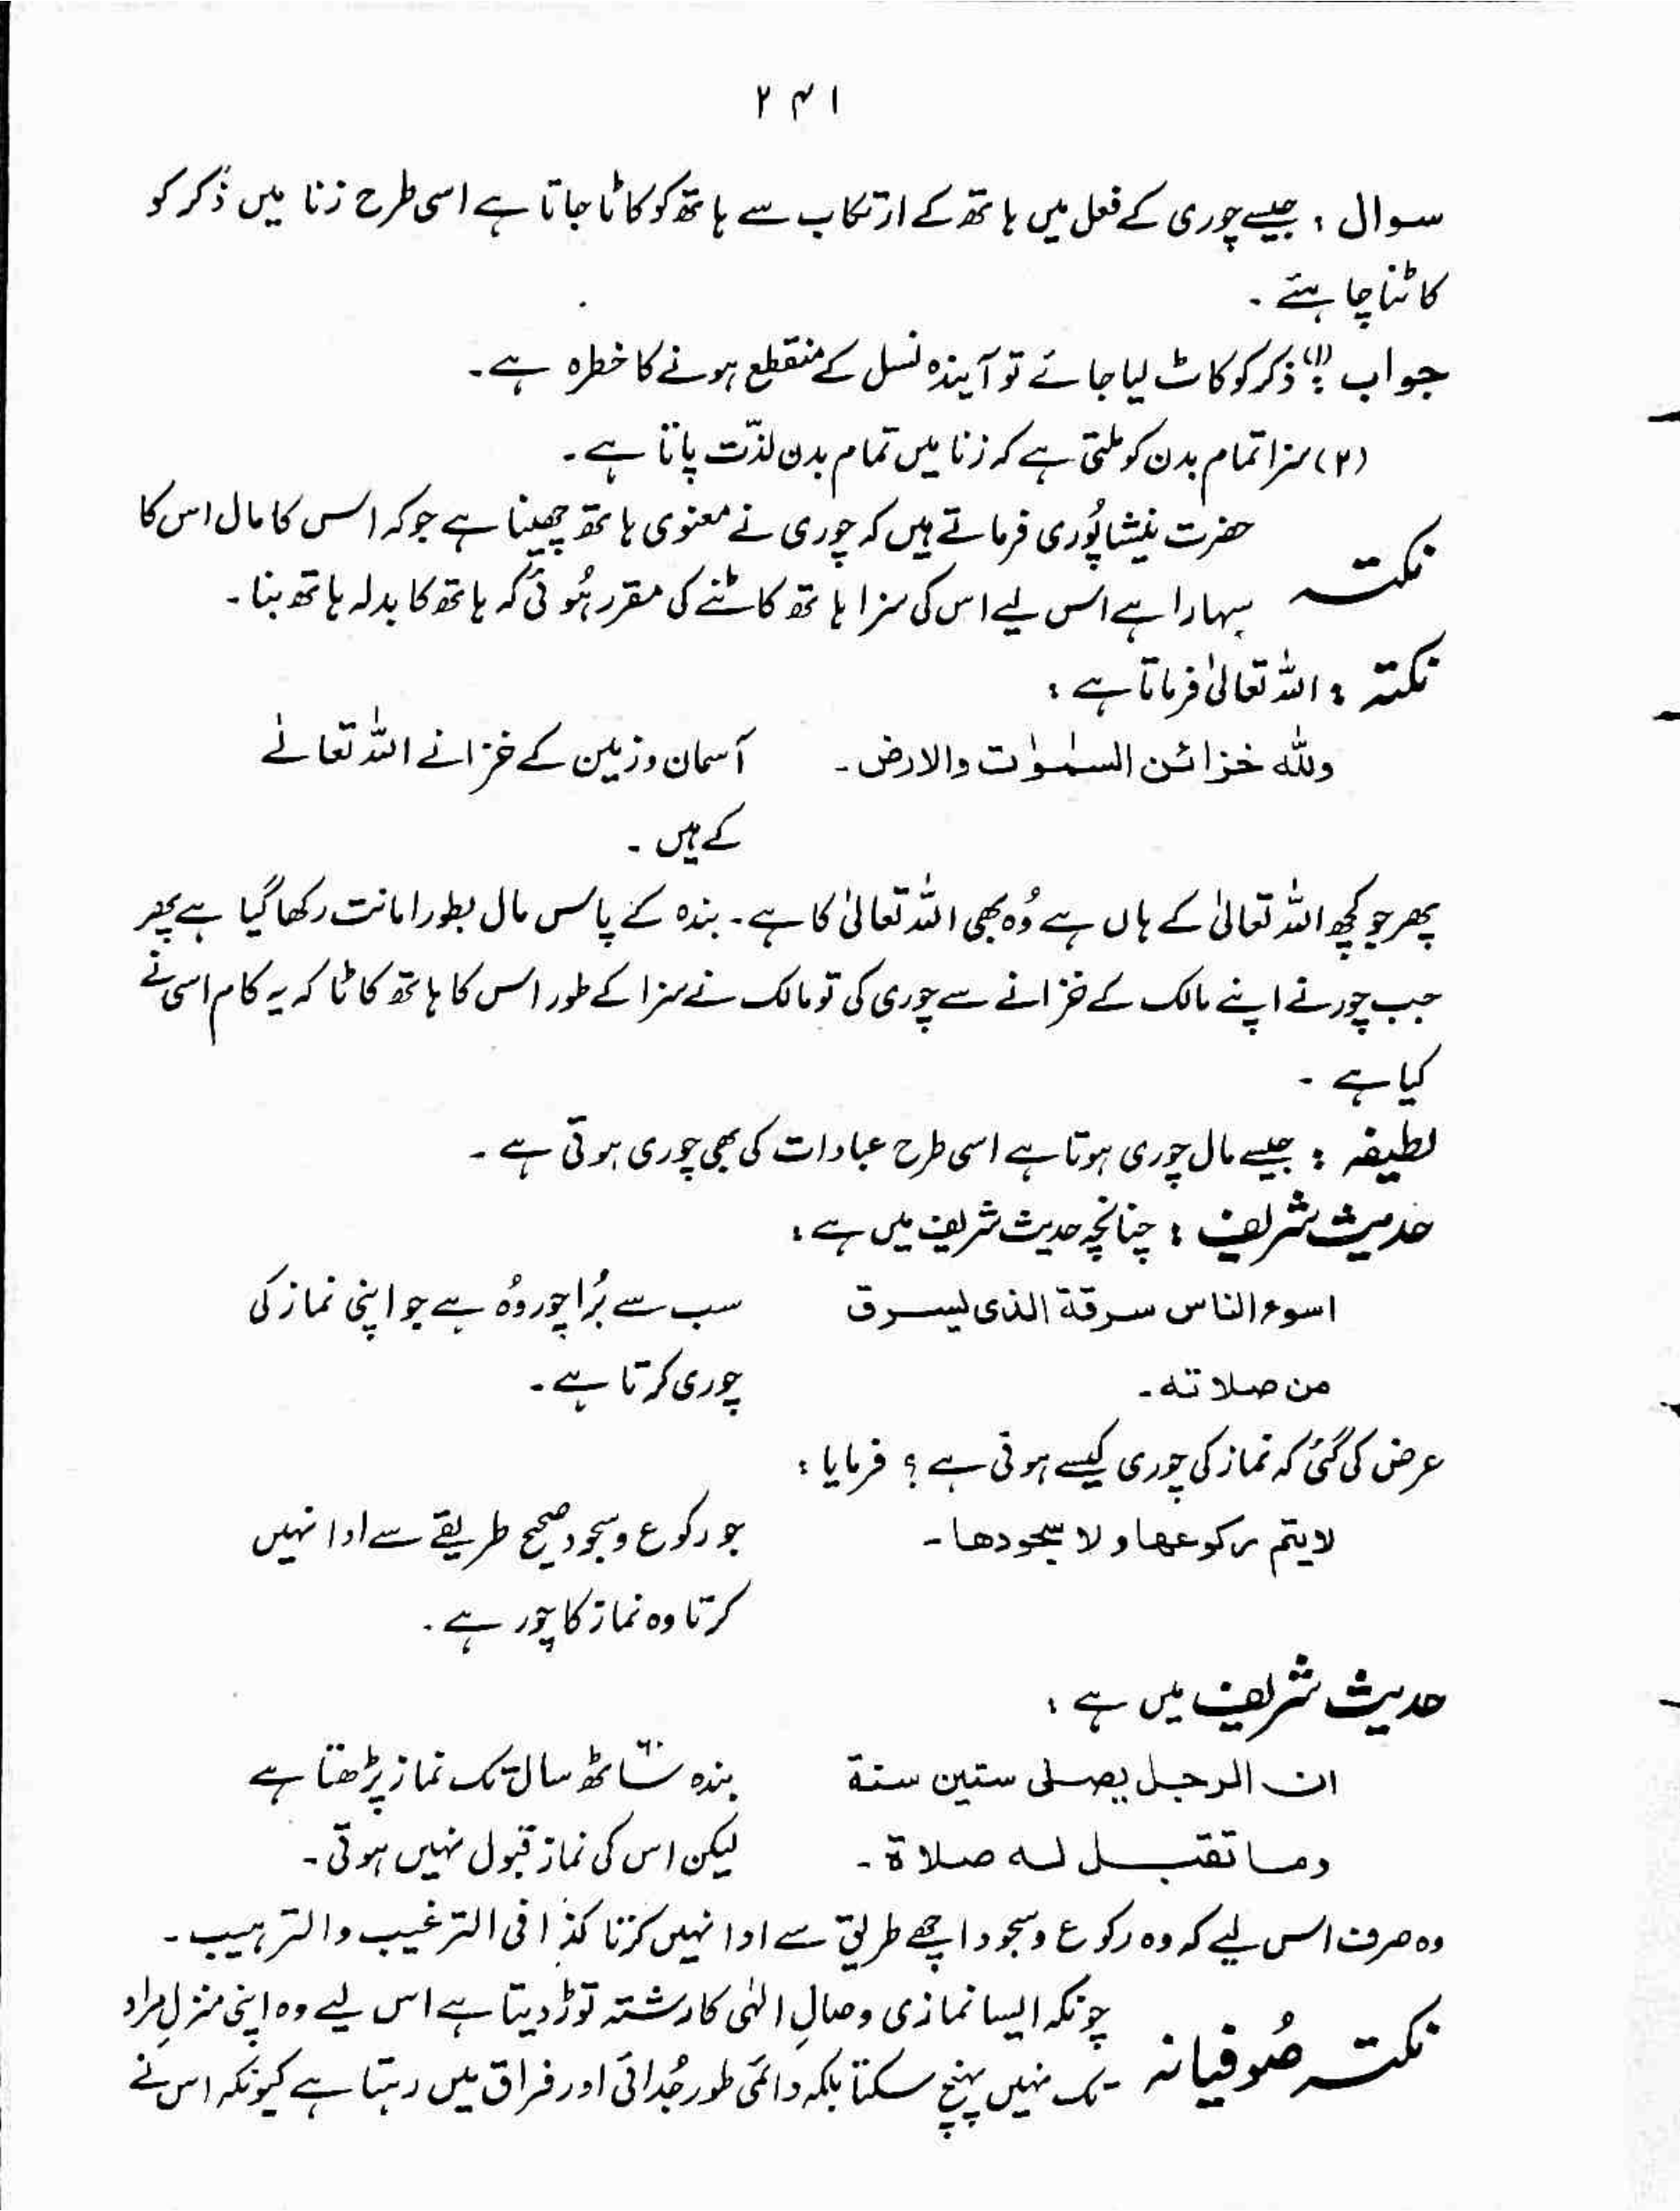 ۲۴۱
سوال : جیسے چوری کے فعل میں ہاتھ کے ارتکاب سے ہاتھ کو کاٹا جاتا ہے اسی طرح زنا میں ذکر کو
کاٹنا چاہئے ۔
جواب : (۱) ذکر کو کاٹ لیا جائے تو آیندہ نسل کے منقطع ہونے کا خطرہ ہے ۔
(۲) سزا تمام بدن کو ملتی ہے کہ زنا میں تمام بدن لذّت پاتا ہے ۔
نکتہ حضرت نیشاپُوری فرماتے ہیں کہ چوری نے معنوی ہاتھ چھینا ہے جو کہ اس کا مال اس کا
سہارا ہے اس لیے اس کی سزا ہاتھ کاٹنے کی مقرر ہُوئی کہ ہاتھ کا بدلہ ہاتھ بنا ۔
نکتہ : اللہ تعالیٰ فرماتا ہے :
وللہ خزائن السمٰوٰت والارض ۔ آسمان و زمین کے خزانے اللہ تعالےٰ
کے ہیں ۔
پھر جو کچھ اللہ تعالیٰ کے ہاں ہے وُہ بھی اللہ تعالیٰ کا ہے ۔ بندہ کے پاس مال بطور امانت رکھا گیا ہے پھر
جب چور نے اپنے مالک کے خزانے سے چوری کی تو مالک نے سزا کے طور اس کا ہاتھ کاٹا کہ یہ کام اسی نے
کیا ہے ۔
لطیفہ : جیسے مال چوری ہوتا ہے اسی طرح عبادات کی بھی چوری ہوتی ہے ۔
حدیث شریف : چنانچہ حدیث شریف میں ہے :
اسوء الناس سرقة الذی یسرق سب سے بُرا چور وُہ ہے جو اپنی نماز کی
من صلاته ۔ چوری کرتا ہے ۔
عرض کی گئی کہ نماز کی چوری کیسے ہوتی ہے ؟ فرمایا :
لا یتم رکوعها ولا سجودها ۔ جو رکوع و سجود صحیح طریقے سے ادا نہیں
کرتا وہ نماز کا چور ہے ۔
حدیث شریف میں ہے :
ان الرجل یصلی ستین سنة بندہ ساٹھ سال تک نماز پڑھتا ہے
وما تقبل له صلاة ۔ لیکن اس کی نماز قبول نہیں ہوتی ۔
وہ صرف اس لیے کہ وہ رکوع و سجود اچھے طریق سے ادا نہیں کرتا کذا فی الترغیب والترہیب ۔
نکتہ صُوفیانہ چونکہ ایسا نمازی وصالِ الٰہی کا رشتہ توڑ دیتا ہے اس لیے وہ اپنی منزلِ مراد
تک نہیں پہنچ سکتا بلکہ دائمی طور جُدائی اور فراق میں رہتا ہے کیونکہ اس نے